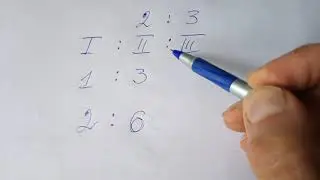 2 : 3
I : II : III
1 : 3
2 : 6